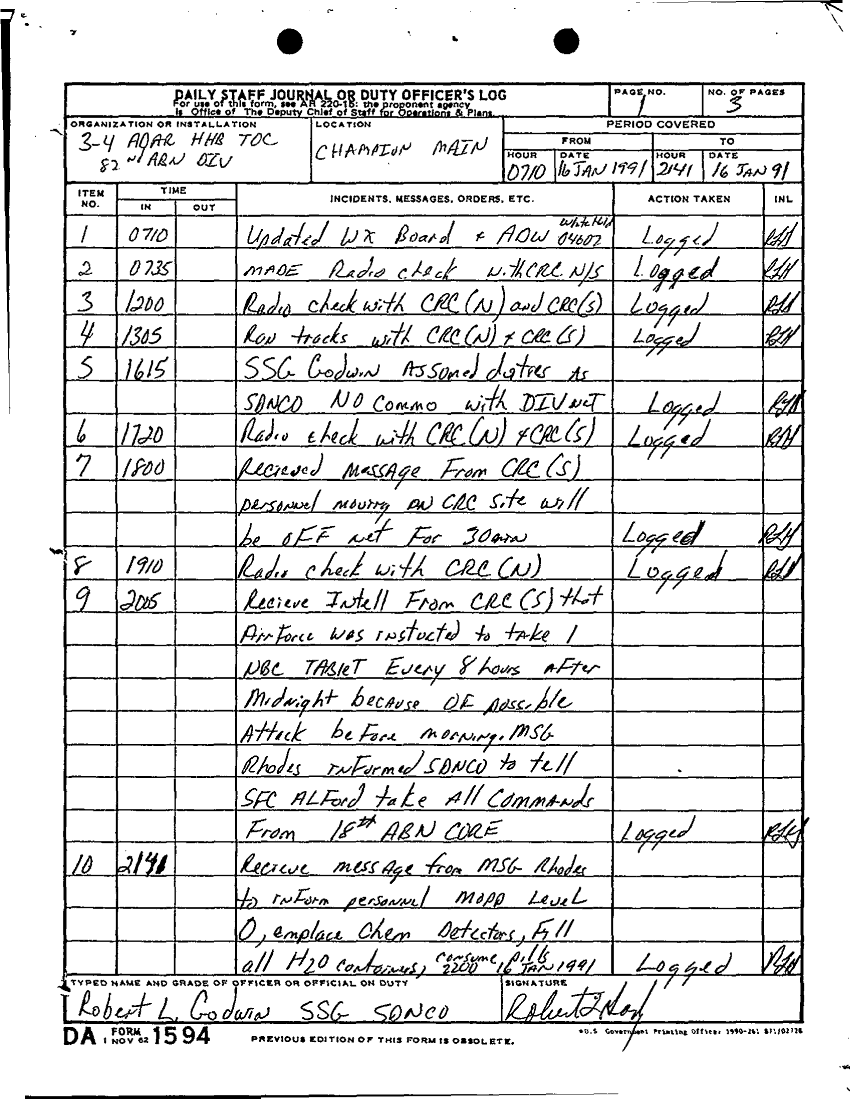 DAILY STAFF JOURNAL OR DUTY OFFICER'S LOG
For use of this form, see AR 220-15: the proponent agency
is Office of The Deputy Chief of Staff for Operations & Plans.
PAGE NO.
1
NO. OF PAGES
3
ORGANIZATION OR INSTALLATION
3-4 ADAR HHB TOC
82nd ABN DIV
LOCATION
CHAMPION MAIN
PERIOD COVERED
FROM
TO
HOUR
0710
DATE
16 JAN 1991
HOUR
2141
DATE
16 JAN 91
ITEM NO.
TIME
IN
OUT
INCIDENTS, MESSAGES, ORDERS, ETC.
ACTION TAKEN
INL
1 0710 Updated WX Board & ADW White Hld 04602 Logged
2 0735 MADE Radio check with CRC N/S Logged
3 1200 Radio check with CRC (N) and CRC(S) Logged
4 1305 Ran tracks with CRC(N) & CRC (S) Logged
5 1615 SSG Godwin Assumed dutres As
SDNCO NO Commo with DIV NET Logged
6 1720 Radio check with CRC (N) & CRC (S) Logged
7 1800 Recieved Message From CRC (S)
personnel moving on CRC Site will
be OFF net For 30min Logged
8 1910 Radio check with CRC (N) Logged
9 2005 Recieve Intell From CRC (S) that
AirForce was instucted to take 1
NBC TABleT Every 8 hours AFter
Midnight because OF possible
Attack before morning. MSG
Rhodes inFormed SDNCO to tell
SFC ALFord take All Commands
From 18th ABN CORE Logged
10 2141 Recieve message from MSG Rhodes
to inForm personnel MOPP Level
0, emplace Chem Detectors, Fill
all H2O containers, consume pills 2200 16 JAN 1991 Logged
TYPED NAME AND GRADE OF OFFICER OR OFFICIAL ON DUTY
Robert L. Godwin SSG SDNCO
SIGNATURE
DA FORM 1594
1 NOV 62
PREVIOUS EDITION OF THIS FORM IS OBSOLETE.
*U.S. Government Printing Office: 1990-261-871/02728